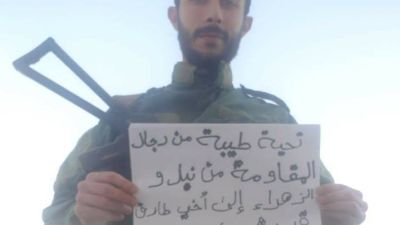 تحية طيبة من رجال
المقاومة من نبل و
الزهراء إلى أخي طارق